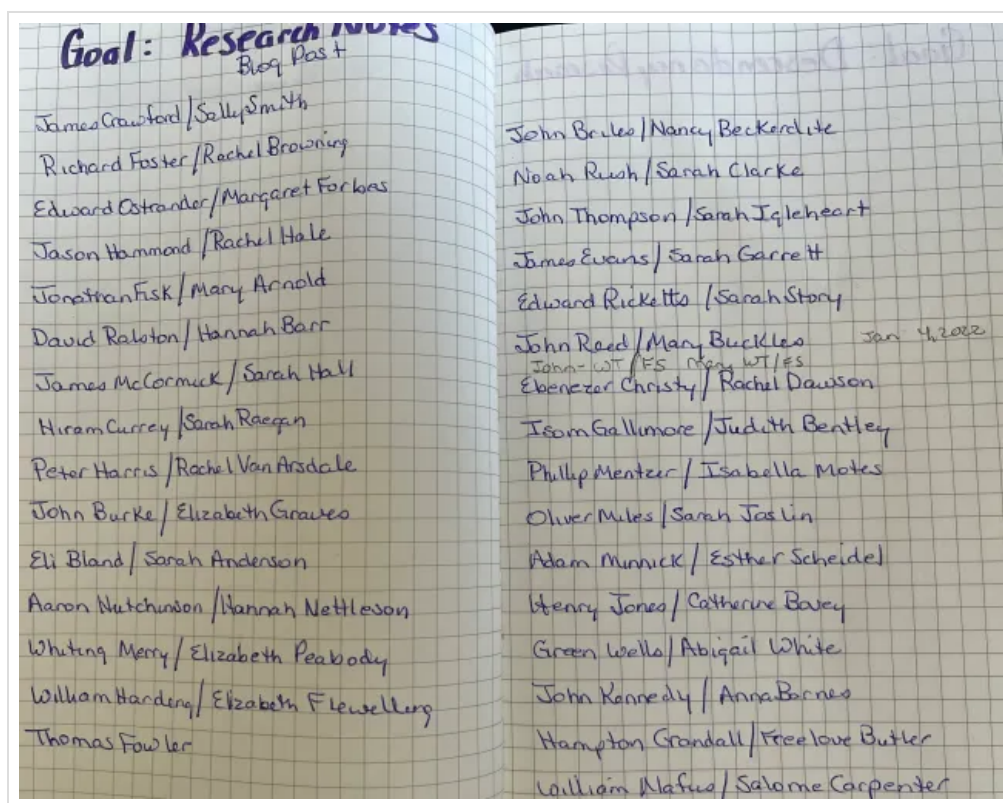 Goal: Research Notes
Blog Post
James Crawford/Sally Smith
Richard Foster/Rachel Browning
Edward Ostrander/Margaret Forbes
Jason Hammond/Rachel Hale
Jonathan Fisk/Mary Arnold
David Ralston/Hannah Barr
James McCormick/Sarah Hall
Hiram Currey/Sarah Raegan
Peter Harris/Rachel Van Arsdale
John Burke/Elizabeth Graves
Eli Bland/Sarah Anderson
Aaron Hutchinson/Hannah Nettleson
Whiting Merry/Elizabeth Peabody
William Harding/Elizabeth Flewelling
Thomas Fowler
John Briles/Nancy Beckerdite
Noah Rush/Sarah Clarke
John Thompson/Sarah Igleheart
James Evans/Sarah Garrett
Edward Ricketts/Sarah Story
John Reed/Mary Buckles Jan 4, 2022
John-WT/FS Mary WT/FS
Ebenezer Christy/Rachel Dawson
Isom Gallimore/Judith Bentley
Phillip Mentzer/Isabella Motes
Oliver Miles/Sarah Joslin
Adam Minnick/Esther Scheidel
Henry Jones/Catherine Bovey
Green Wells/Abigail White
John Kennedy/Anna Barnes
Hampton Crandall/Freelove Butler
William Nafus/Salome Carpenter